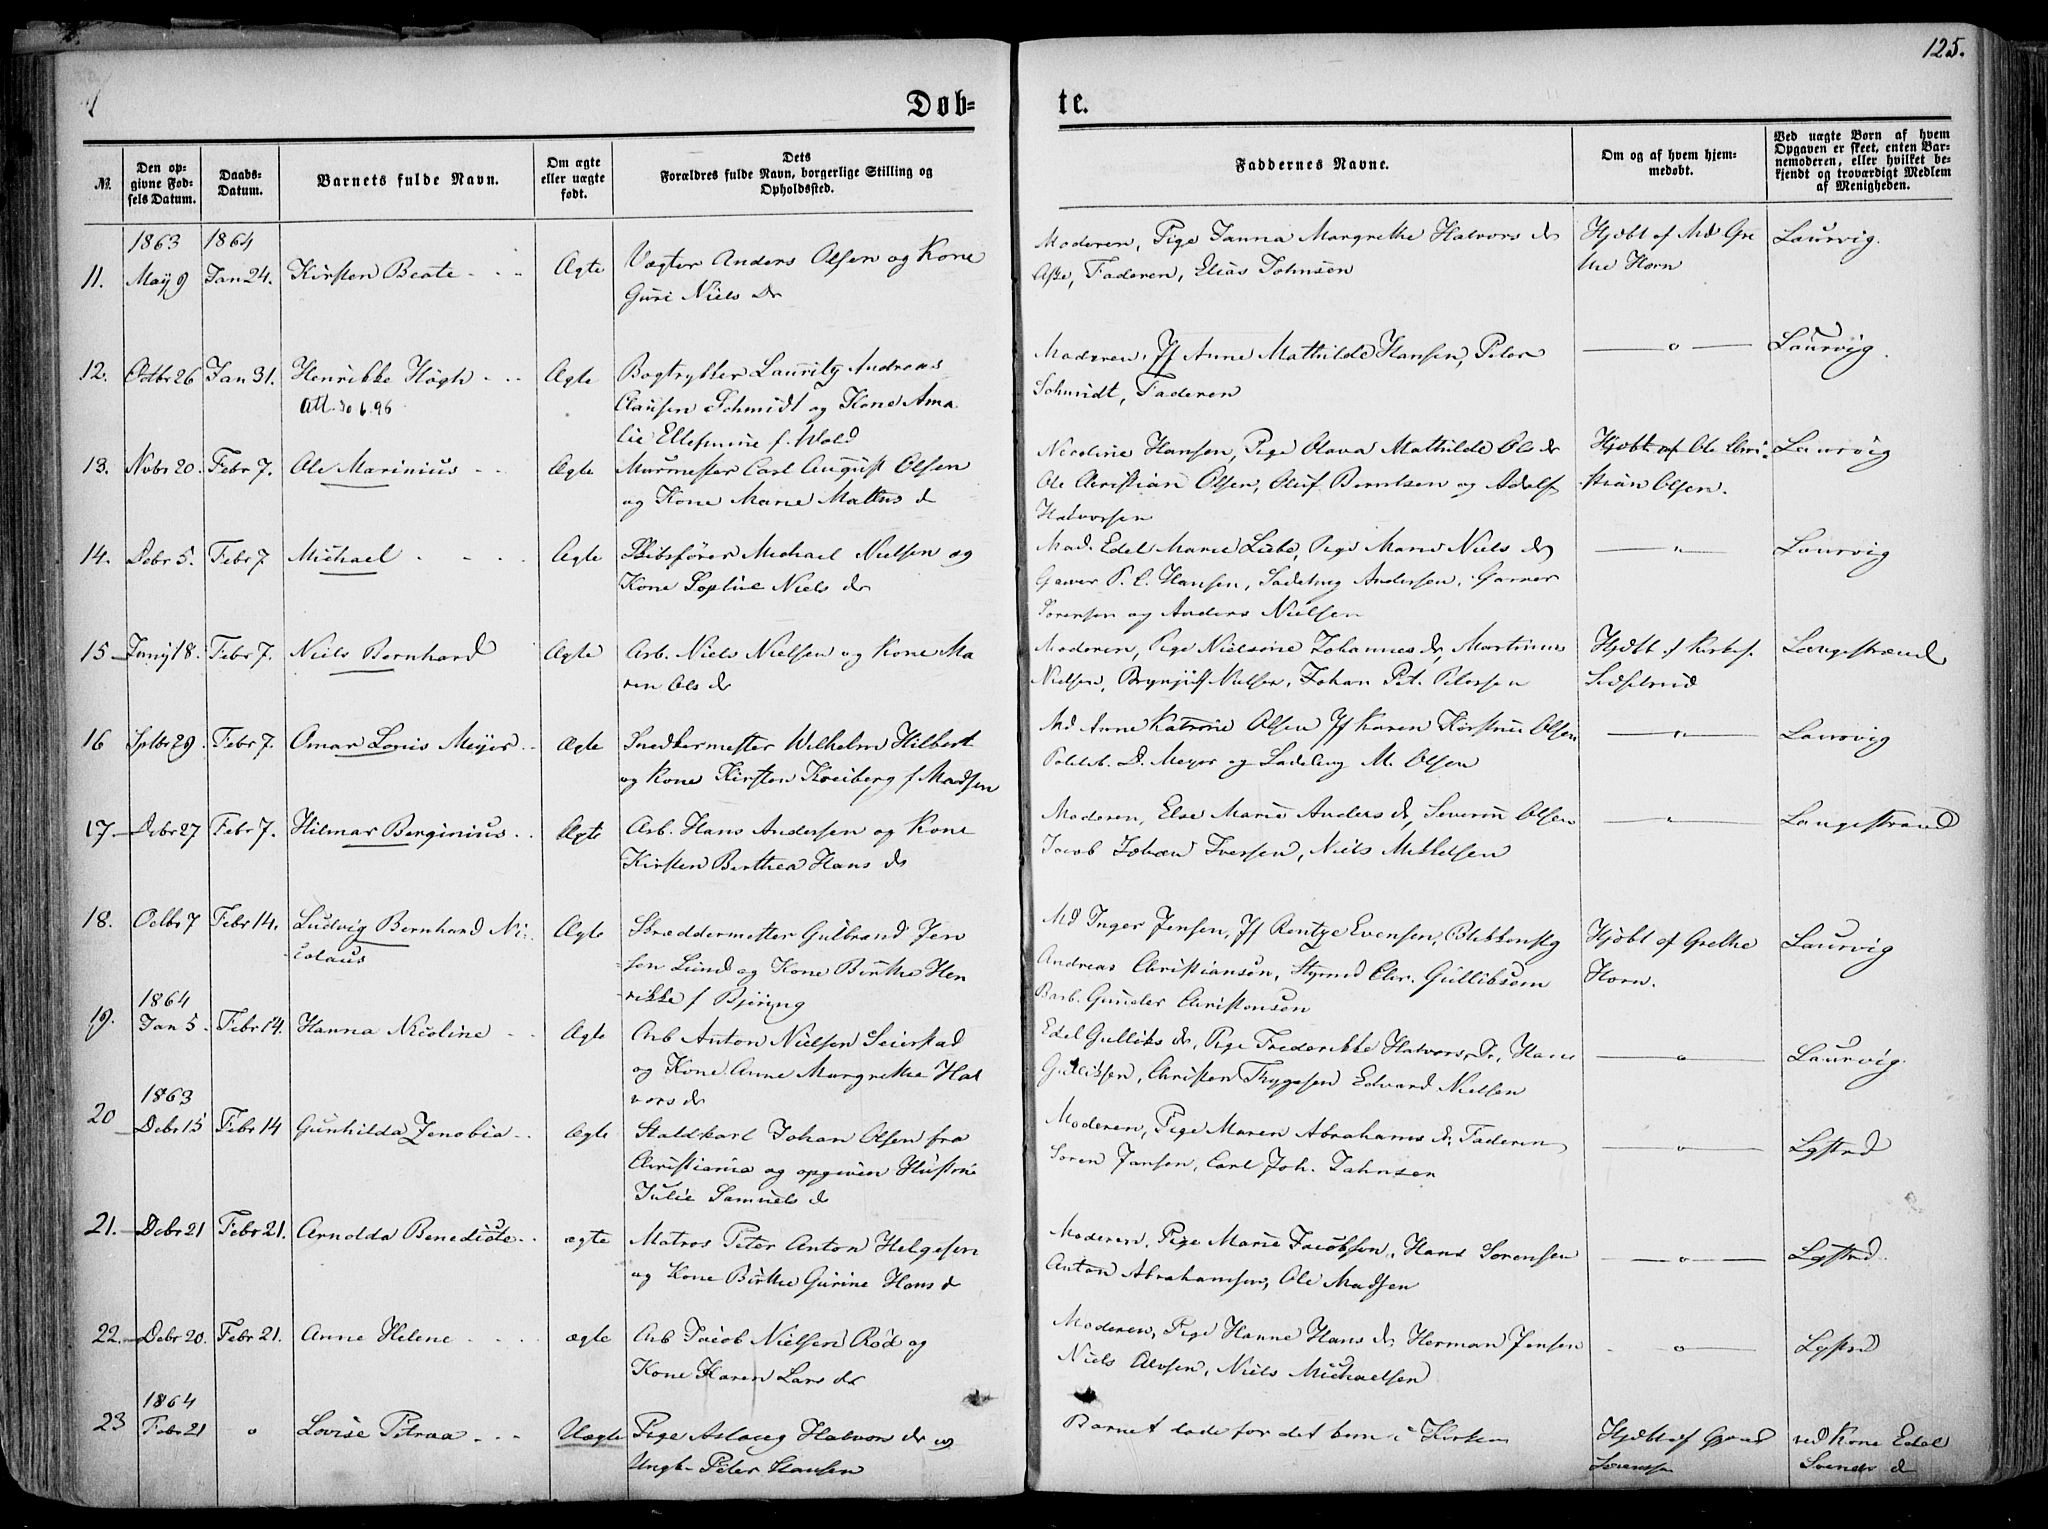 125.
Døb-
te.
№.
Den op-
givne Fød-
sels Datum.
Daabs-
Datum.
Barnets fulde Navn.
Om ægte
eller uægte
født.
Dets
Forældres fulde Navn, borgerlige Stilling og
Opholdssted.
Faddernes Navne.
Om og af hvem hjem-
medøbt.
Ved uægte Børn af hvem
Opgaven er skeet, enten Bar-
nemoderen, eller hvilket be-
kjendt og troværdigt Medlem
af Menigheden.
1863 1864
11. May 9 Jan 24. Kirsten Beate Ægte Vægter Anders Olsen og Kone
Guri Niels Dr
Moderen, Pige Janna Margrethe Halvors dr
Aske, Faderen, Elias Johnsen
Hjdbt af Md Gre
the Horn
Laurvig.
12. Octbr 26 Jan 31. Henrikke Høgh Ægte Bogtrykker Lauritz Andreas
Att. 30 6.96
Clausen Schmidt og Kone Ama
lie Ellefmine f. Wold
Moderen, Jf Anne Mathilde Hansen, Peter
Schmidt, Faderen
— o —
Laurvig.
13. Novbr 20. Febr 7. Ole Marinius Ægte Murmester Carl August Olsen
og Kone Marie Mattus d
Nicoline Hansen, Pige Olava Mathilde Ols dr
Ole Christian Olsen, Oluf Berntsen og Adolf
Halvorsen
Hjdbt af Ole Chri-
stian Olsen.
Laurvig
14. Debr 5. Febr 7 Michael Ægte Skibsfører Michael Nielsen og
Kone Sophie Niels dr
Mad. Edel Marie Lübe, Pige Marie Niels dr
Garver P. C. Hansen, Sadelmg Andersen, Garver
Sørensen og Anders Nielsen
— " —
Laurvig
15 Juny 18. Febr 7. Niels Bernhard Ægte Arb. Niels Nielsen og Kone Ma
ren Ols dr
Moderen, Pige Nielsine Johannes dr, Martinus
Nielsen, Brynjulf Nielsen, Johan Pet. Petersen
Hjdbt af Kirkes.
Sidselrud
Langestrand
16 Sptbr 29. Febr 7. Omar Louis Meyer Ægte Snedkermester Wilhelm Hilbert
og Kone Kirsten Kreiberg f Madsen
Md Anne Katrine Olsen Jf Karen Kirstine Olsen
Politib. D. Meyer og Sadelmg M. Olsen
— " —
Laurvig
17. Debr 27 Febr 7. Hilmar Berginius Ægte Arb. Hans Andersen og Kone
Kirsten Berthea Hans dr
Moderen, Else Marie Anders dr, Severin Olsen
Jacob Johan Iversen, Niels Mikkelsen
— " —
Langestrand
18. Octbr 7 Febr 14. Ludvig Bernhard Ni-
colaus
Ægte Skræddermester Gulbrand Jen
sen Lund og Kone Birthe Hen
rikke f Bjering
Md Inger Jensen, Jf Rentze Evensen, Blikkenslg
Andreas Christiansen, Styrmd Chr. Gulliksen
Barb. Gunder Christensen
Hjdbt af Grethe
Horn.
Laurvig
1864
19. Jan 5. Febr 14. Hanna Nicoline Ægte Arb Anton Nielsen Seierstad
og Kone Anne Margrethe Hal
vors dr
Edel Gulliks dr, Pige Frederikke Halvors dr, Hans
Gulliksen, Christen Thygesen Edvard Nielsen
— o —
Laurvig.
1863
20 Debr 15 Febr 14 Gunhilda Zenobia Ægte Staldkarl Johan Olsen fra
Christiania og opgiven Hustru
Julie Samuels dr
Moderen, Pige Maren Abrahams dr, Faderen
Soren Jansen, Carl Joh. Jahnsen
— o —
Lgstrd
21. Debr 21 Febr 21. Arnolda Benedicte ægte Matros Peter Anton Helgesen
og Kone Birthe Gurine Hans d
Moderen, Pige Marie Jacobsen, Hans Sørensen
Anton Abrahamsen, Ole Madsen
— o —
Lgstrd.
22. Debr 20. Febr 21. Anne Helene ægte Arb Jacob Nielsen Rød og
Kone Karen Lars dr
Moderen, Pige Hanne Hans dr Herman Jensen
Niels Olvsen, Niels Michaelsen
— o —
Lgstrd
1864
23 Febr 21 o Lovise Petraa Uægte Pige Aslaug Halvors dr og
Ungk. Peter Hansen
Barnet døde før det kom i Kirken
Hjdbt af
Sørensen
ved Kone Edel
Svends d